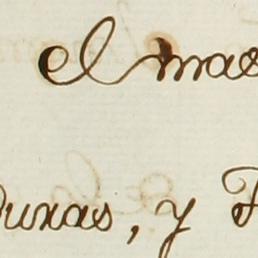 el mas
duras, y